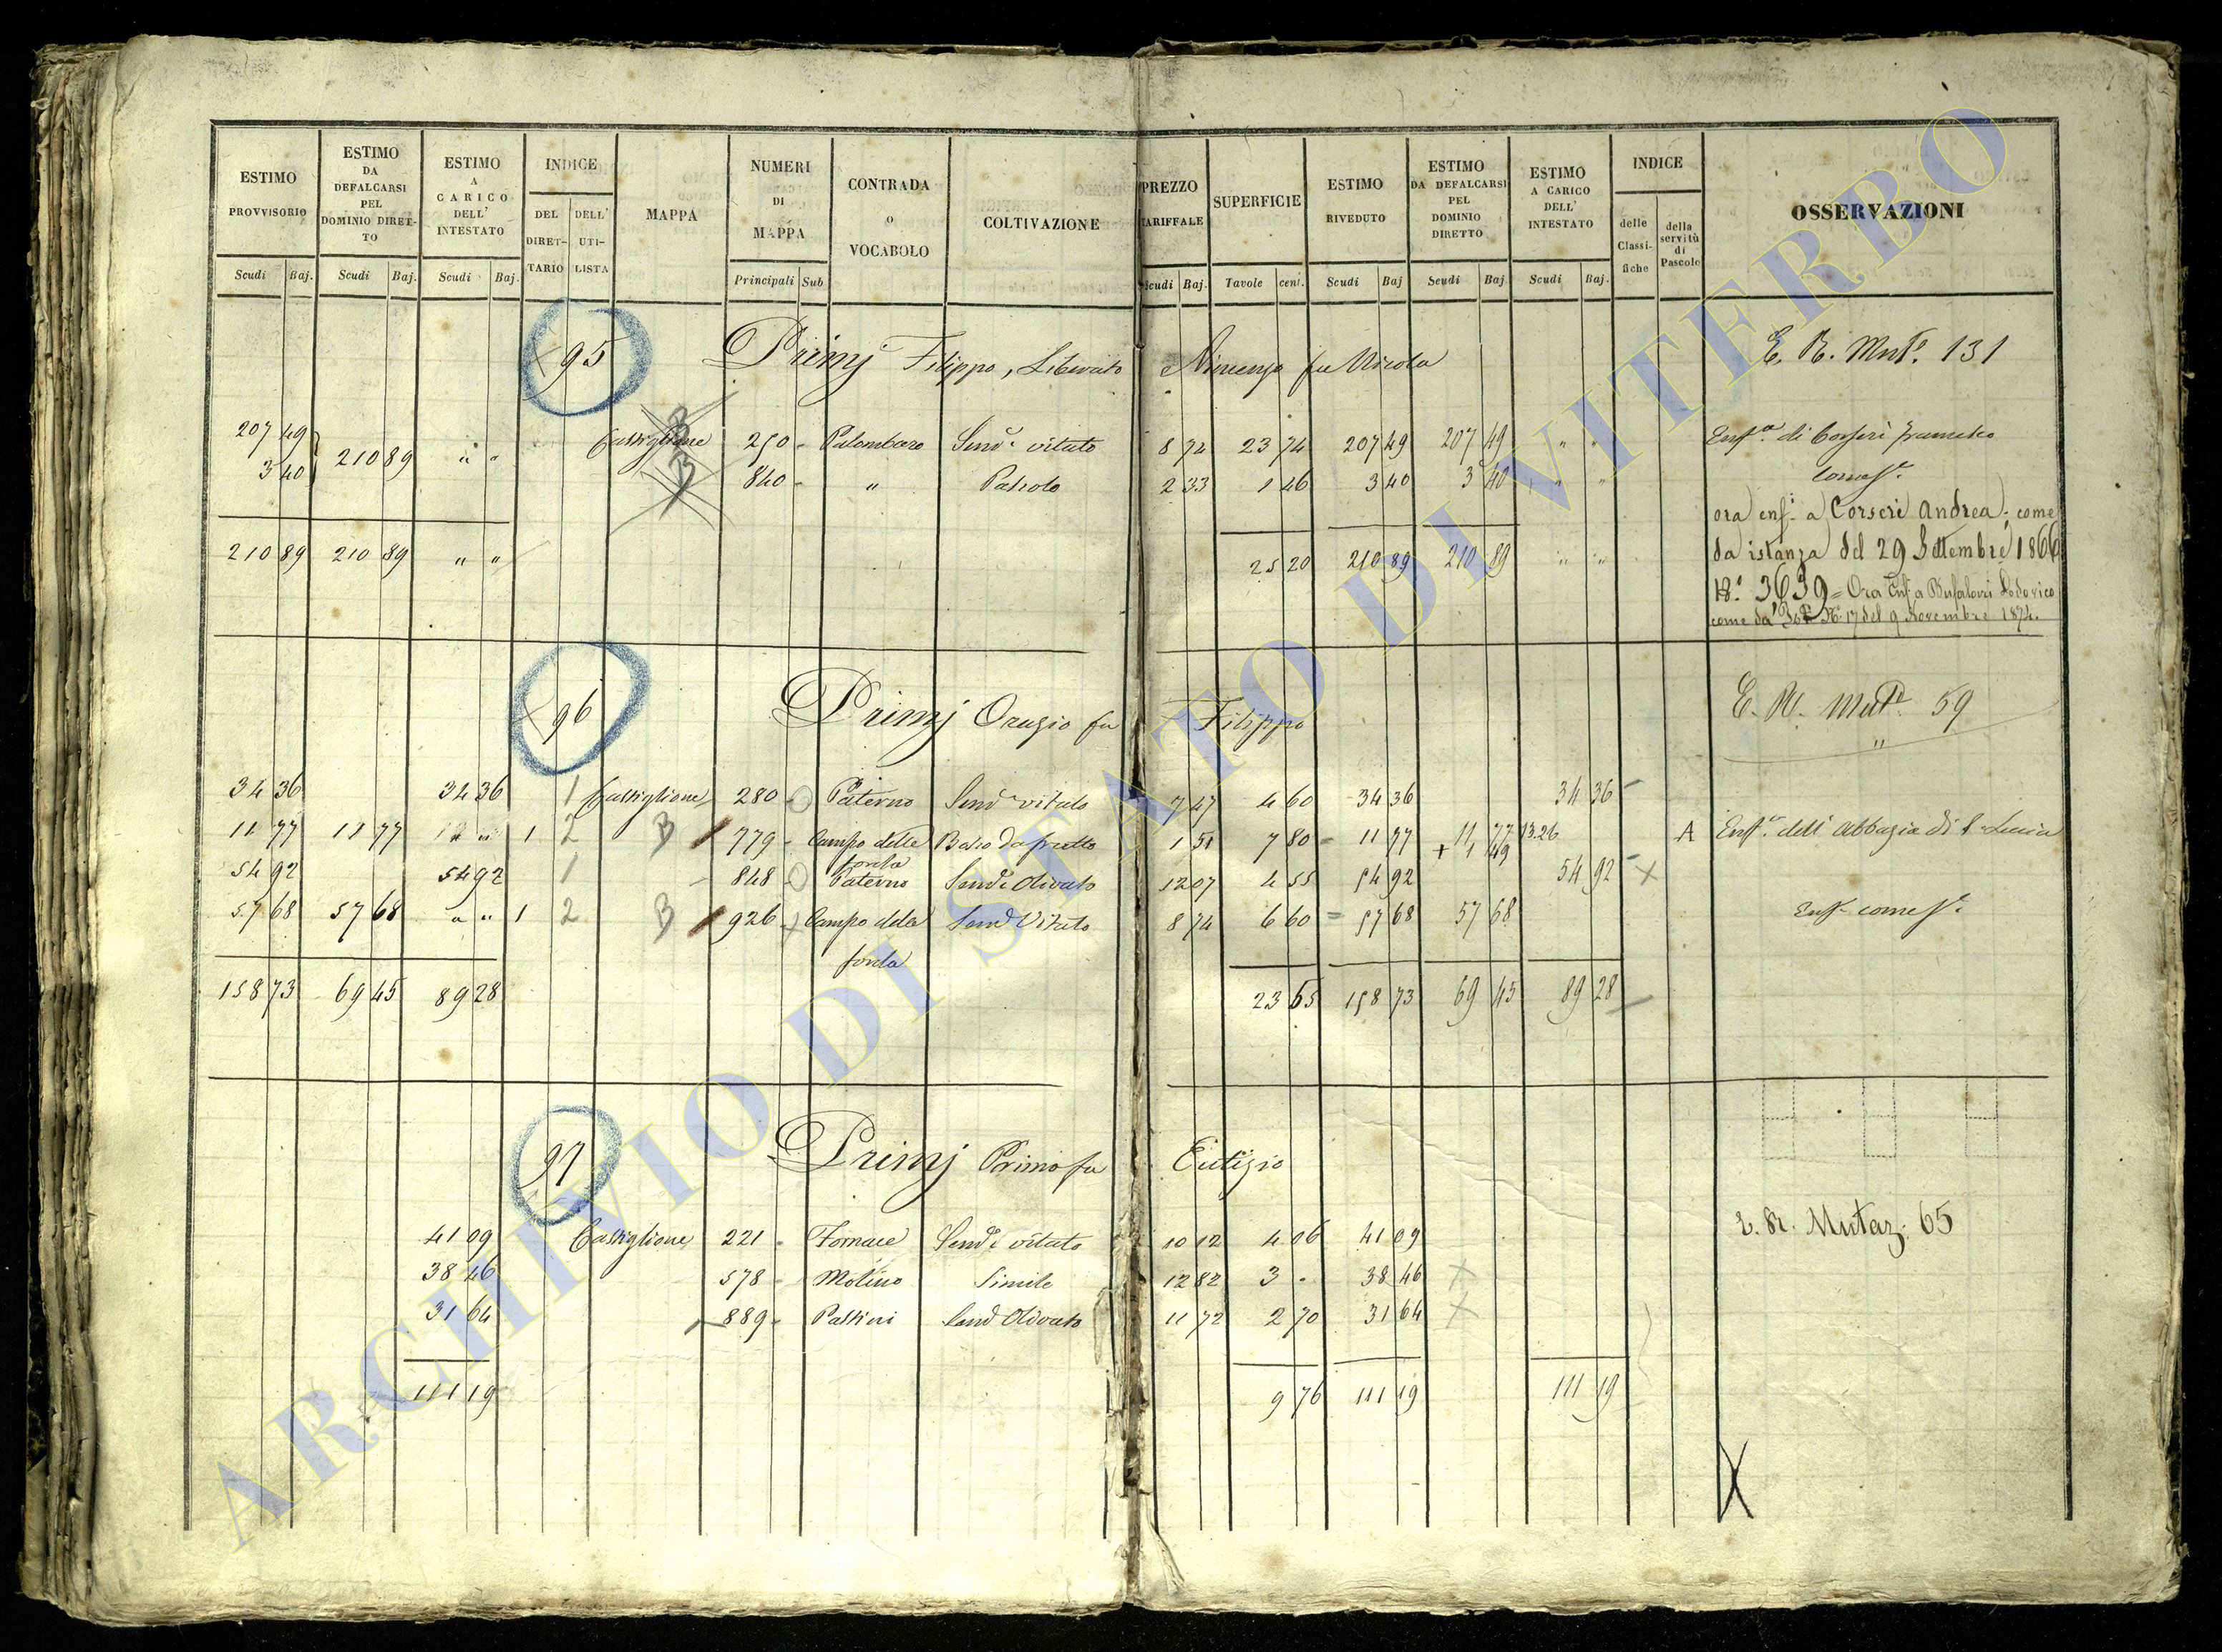 ESTIMO PROVVISORIO | ESTIMO DA DEFALCARSI PEL DOMINIO DIRETTO | ESTIMO A CARICO DELL' INTESTATO | INDICE | MAPPA | NUMERI DI MAPPA | CONTRADA O VOCABOLO | COLTIVAZIONE | PREZZO TARIFFALE | SUPERFICIE | ESTIMO RIVEDUTO | ESTIMO DA DEFALCARSI PEL DOMINIO DIRETTO | ESTIMO A CARICO DELL' INTESTATO | INDICE | OSSERVAZIONI
DEL DIRETTARIO | DELL' UTILISTA | delle Classifiche | della servitù di Pascolo
Scudi | Baj. | Scudi | Baj. | Scudi | Baj. | Principali | Sub | Scudi | Baj. | Tavole | cent. | Scudi | Baj | Scudi | Baj | Scudi | Baj.
95 Primj Filippo, Liberato Vincenzo fu Nicola E. R. Mute. 131
207 49 | 210 89 | " " | Castiglione | B | 250 - | Palombaro | Send. vitato | 8 74 | 23 74 | 207 49 | 207 49 | " " | Enfa. di Corseri Francesco
3 40 | B | 840 - | " | Pascolo | 2 33 | 1 46 | 3 40 | 3 40 | " " | come Sa.
ora enf. a Corseri Andrea, come
210 89 | 210 89 | " " | 25 20 | 210 89 | 210 89 | " " | da istanza del 29 Settembre 1866
No. 3639 = Ora Enf. a Bufaloni Lodovico
come da No. 17 del 9 Novembre 1874.
96 Primj Orazio fu Filippo E. R. Mute. 59
"
34 36 | 34 36 | 1 | Castiglione | 280 - | Paterno | Send. vitato | 7 47 | 4 60 | 34 36 | 34 36
11 77 | 11 77 | " " | 1 | 2 | B | 779 - | Campo della fonda | Bosco da frutto | 1 51 | 7 80 = | 11 77 | 11 77 | 13.26 | A | Enfa. dell' Abbazia di S. Lucia
+ 1 49
54 92 | 54 92 | 1 | 848 - | Paterno | Send. Olivato | 12 07 | 4 55 | 54 92 | 54 92 X
57 68 | 57 68 | " " | 1 | 2 | B | 926 - | Campo della fonda | Send. Vitato | 8 74 | 6 60 = | 57 68 | 57 68 | Enf. come Sa.
158 73 | 69 45 | 89 28 | 23 55 | 158 73 | 69 45 | 89 28
97 Primj Primo fu Eutizio
E. R. Mutaz. 65
41 09 | Castiglione | 221 - | Fornace | Send. vitato | 10 12 | 4 06 | 41 09
38 46 | 578 - | Molino | Simile | 12 82 | 3 - | 38 46 X
31 64 | 889 - | Pastini | Send. Olivato | 11 72 | 2 70 | 31 64 X
111 19 | 9 76 | 111 19 | 111 19
X
ARCHIVIO DI STATO DI VITERBO